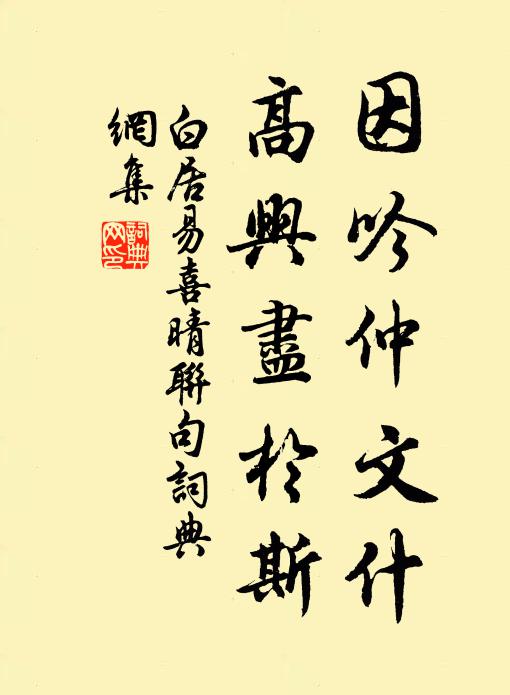 因吟仲文什
高興盡於斯
白居易喜晴聯句詞典
網集
詞典
网印